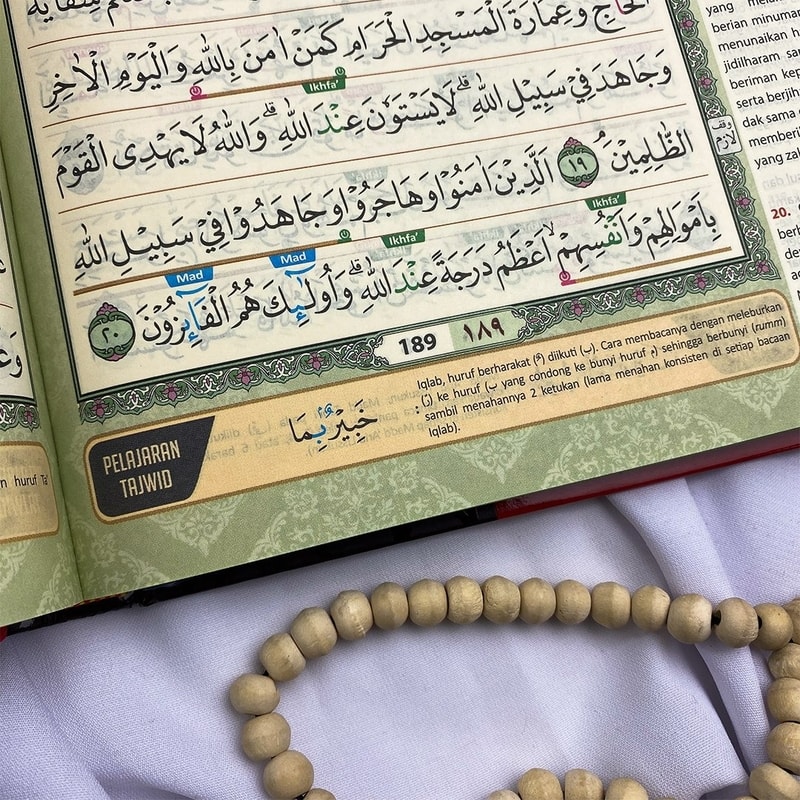 سِقَايَةَ
الْحَاجِّ وَعِمَارَةَ الْمَسْجِدِ الْحَرَامِ كَمَنْ اٰمَنَ بِاللّٰهِ وَالْيَوْمِ الْاٰخِرِ
Ikhfa'
وَجَاهَدَ فِيْ سَبِيْلِ اللّٰهِ ۗ لَا يَسْتَوٗنَ عِنْدَ اللّٰهِ ۗ وَاللّٰهُ لَا يَهْدِى الْقَوْمَ
الظّٰلِمِيْنَ ۘ ١٩ اَلَّذِيْنَ اٰمَنُوْا وَهَاجَرُوْا وَجَاهَدُوْا فِيْ سَبِيْلِ اللّٰهِ
Ikhfa' Ikhfa' Mad Mad
بِاَمْوَالِهِمْ وَاَنْفُسِهِمْۙ اَعْظَمُ دَرَجَةً عِنْدَ اللّٰهِ ۗ وَاُولٰۤىِٕكَ هُمُ الْفَاۤىِٕزُوْنَ ٢٠
وقف
لازم
189 ١٨٩
PELAJARAN
TAJWID
خَبِيْرٌۢ بِمَا
:
Iqlab, huruf berharakat (ـٌ) diikuti (ب). Cara membacanya dengan meleburkan
(نْ) ke huruf (ب yang condong ke bunyi huruf م) sehingga berbunyi (rumm)
sambil menahannya 2 ketukan (lama menahan konsisten di setiap bacaan
Iqlab).
yang
berian minuman
menunaikan
jidilharam
beriman
serta
dak sama
yang
20.
huruf Ta'